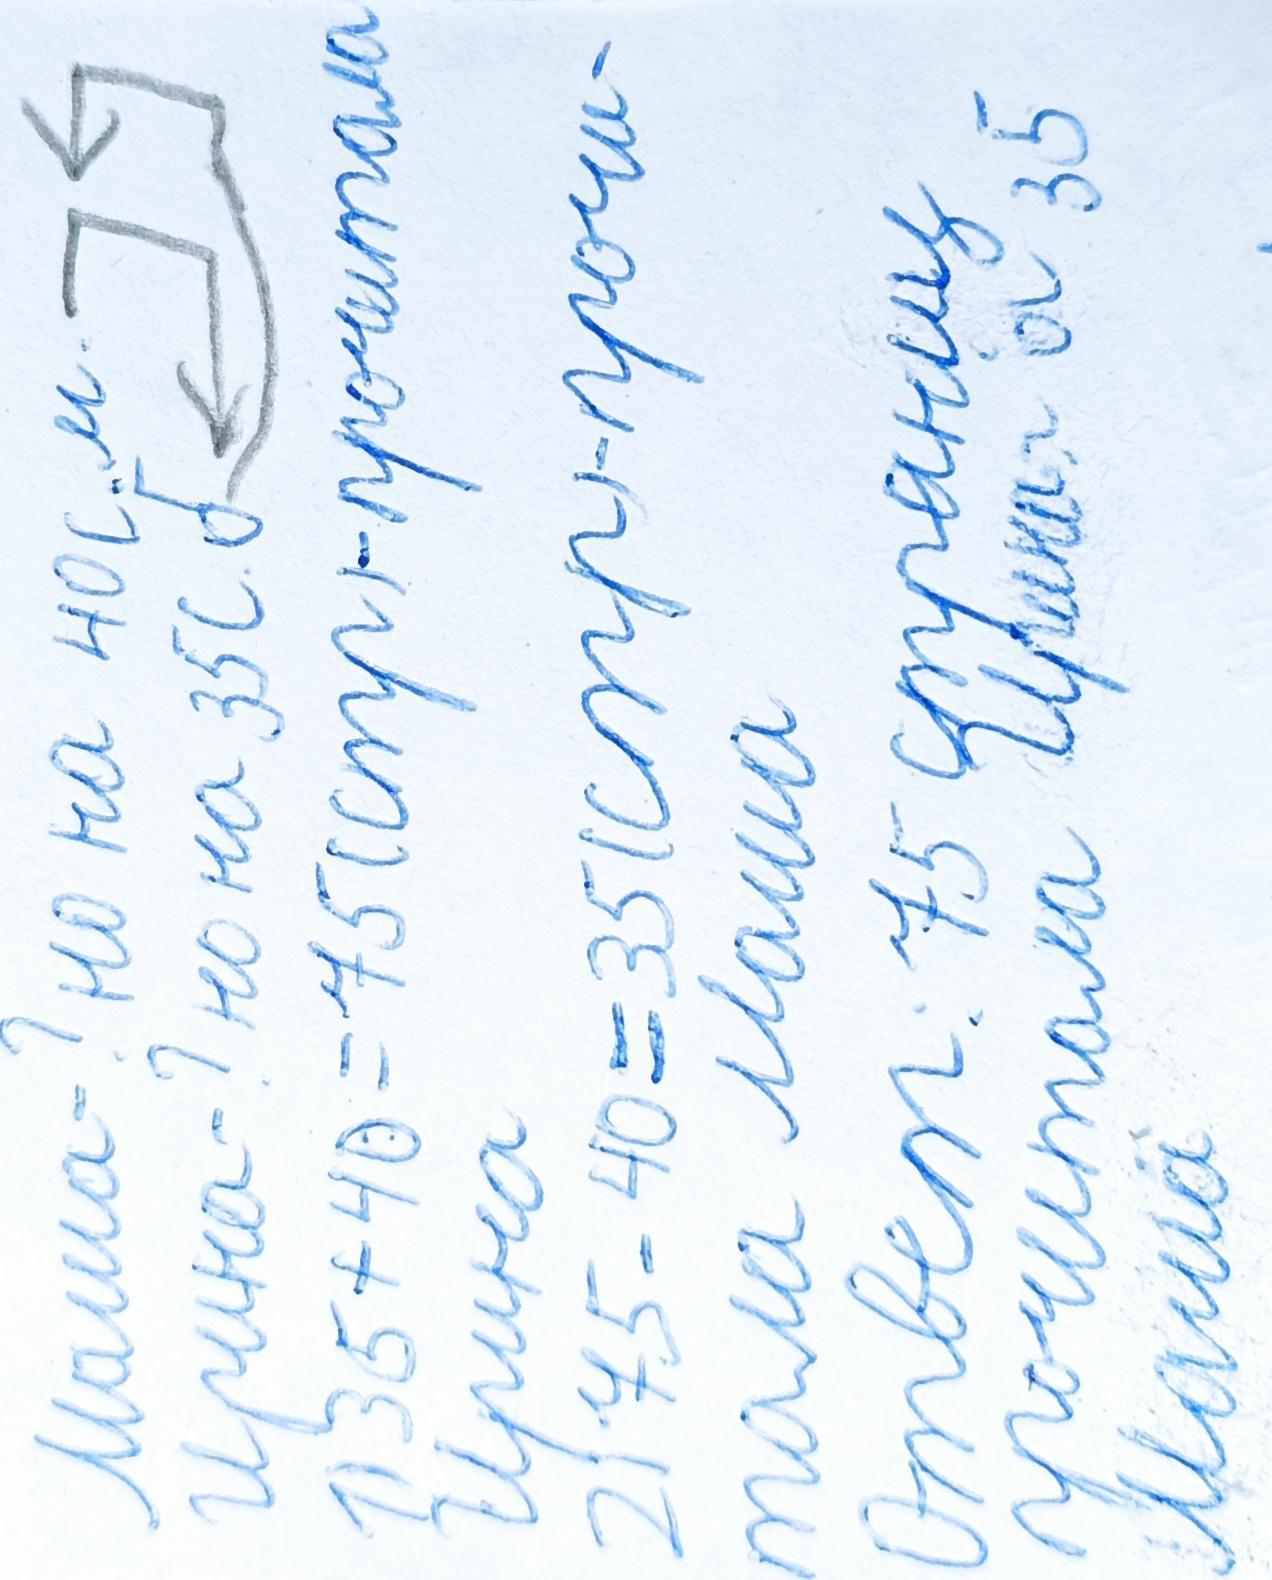 Маша-? но на 40с.м.
Ирина-? но на 35с.б
1)35+40=75(стр)-прочитала
Ирина
2)75-40=35(стр)-прочи-
тала Маша
Ответ: 75 страниц
прочитала Ирина а 35
Маша